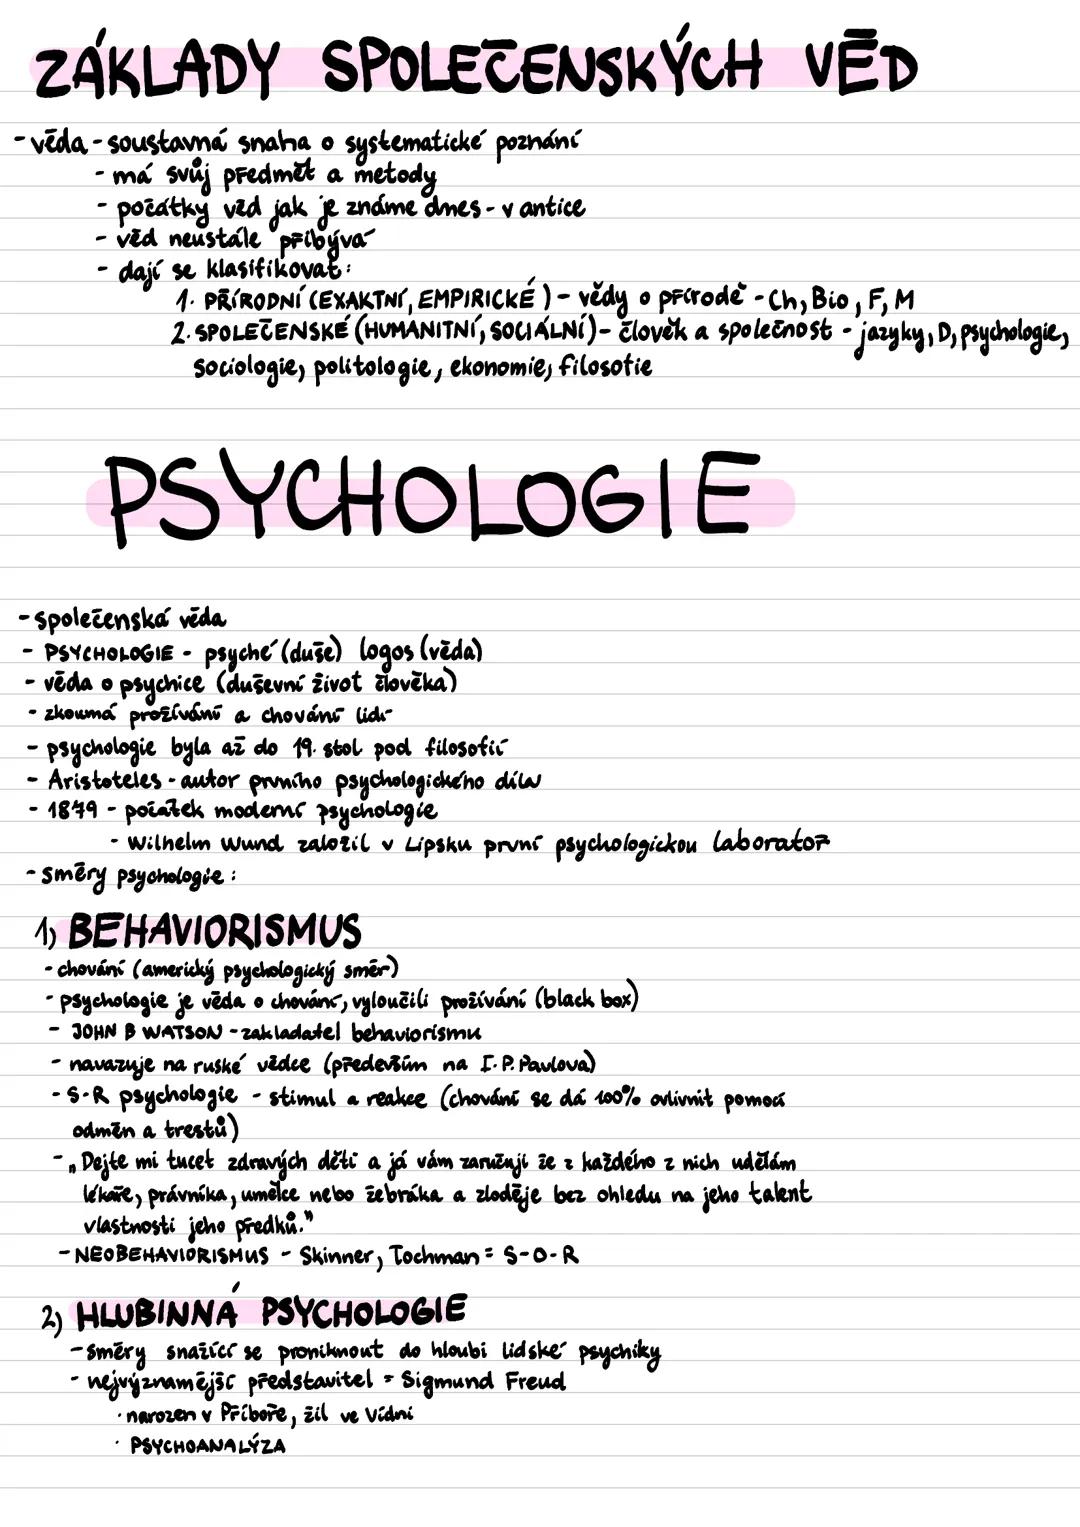 ZÁKLADY SPOLEČENSKÝCH VĚD
- věda - soustavná snaha o systematické poznání
- má svůj předmět a metody
- počátky věd jak je známe dnes - v antice
- věd neustále přibývá
- dají se klasifikovat:
1. PŘÍRODNÍ (EXAKTNÍ, EMPIRICKÉ) - vědy o přírodě - Ch, Bio, F, M
2. SPOLEČENSKÉ (HUMANITNÍ, SOCIÁLNÍ) - člověk a společnost - jazyky, D, psychologie,
sociologie, politologie, ekonomie, filosofie
PSYCHOLOGIE
- společenská věda
- PSYCHOLOGIE - psyché (duše) logos (věda)
- věda o psychice (duševní život člověka)
- zkoumá prožívání a chování lidí
- psychologie byla až do 19. stol pod filosofií
- Aristoteles - autor prvního psychologického díla
- 1879 - počátek moderní psychologie
- Wilhelm Wund založil v Lipsku první psychologickou laboratoř
- směry psychologie:
1) BEHAVIORISMUS
- chování (americký psychologický směr)
- psychologie je věda o chování, vyloučili prožívání (black box)
- JOHN B WATSON - zakladatel behaviorismu
- navazuje na ruské vědce (především na I. P. Pavlova)
- S-R psychologie - stimul a reakce (chování se dá 100% ovlivnit pomocí
odměn a trestů)
- „Dejte mi tucet zdravých dětí a já vám zaručuji že z každého z nich udělám
lékaře, právníka, umělce nebo žebráka a zloděje bez ohledu na jeho talent
vlastnosti jeho předků."
- NEOBEHAVIORISMUS - Skinner, Tochman = S-O-R
2) HLUBINNÁ PSYCHOLOGIE
- směry snažící se proniknout do hloubi lidské psychiky
- nejvýznamější představitel = Sigmund Freud
· narozen v Příboře, žil ve Vídni
· PSYCHOANALÝZA